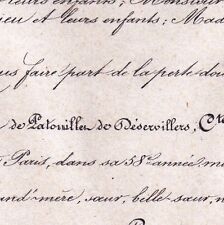 leurs enfants; Monsieur
ieu et leurs enfants; Mad
ous faire part de la perte dou
de Patouillet de Déservillers, Cte
Paris, dans sa 58e année, mu
and'mère, sœur, belle-sœur, n